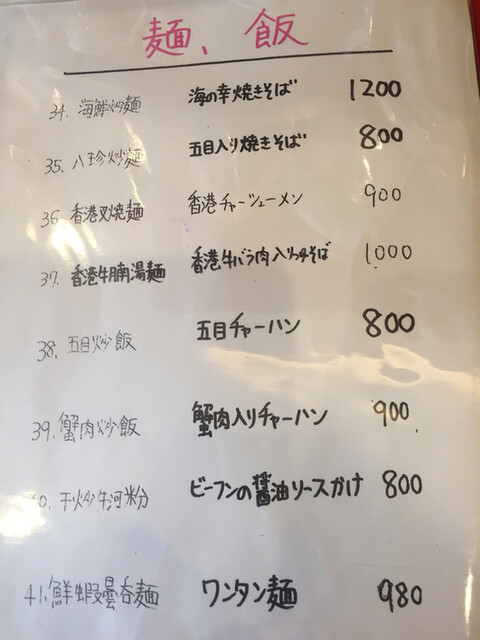 麺、飯
34. 海鮮炒麺 海の幸焼きそば 1200
35. 八珍炒麺 五目入り焼きそば 800
36 香港叉焼麺 香港チャーシューメン 900
37. 香港牛腩湯麺 香港牛バラ肉入りつゆそば 1000
38. 五目炒飯 五目チャーハン 800
39. 蟹肉炒飯 蟹肉入りチャーハン 900
0. 干炒牛河米分 ビーフンの醤油ソースかけ 800
41. 鮮蝦曇呑麺 ワンタン麺 980